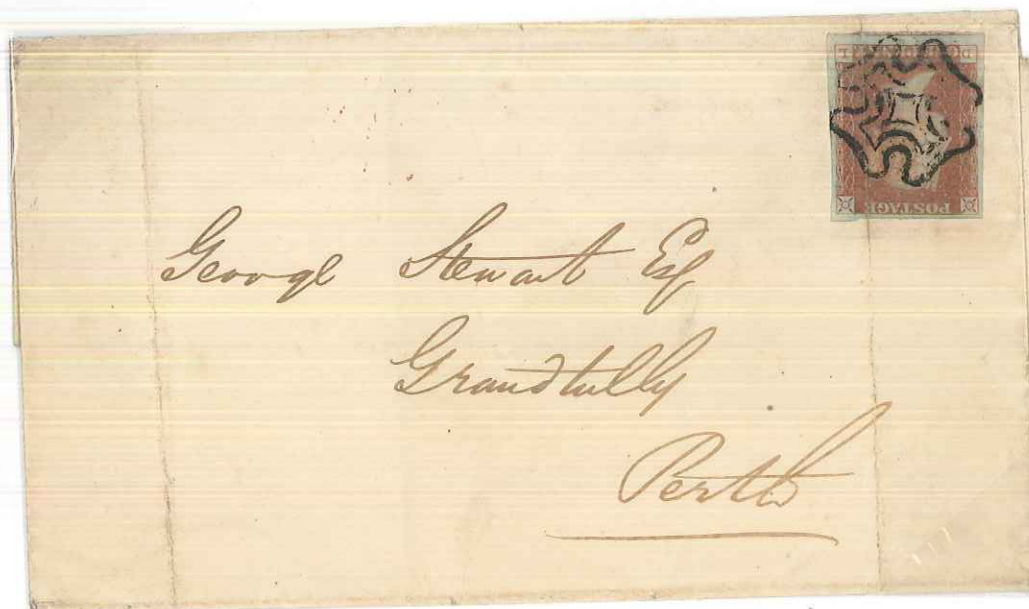 POSTAGE
George Stewart Esq
Grandtully
Perth